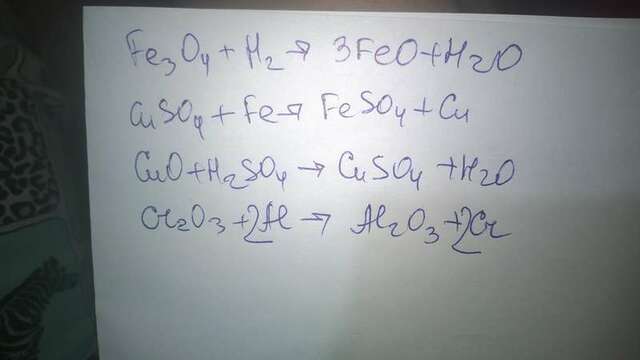 Fe₃O₄ + H₂ → 3FeO + H₂O
CuSO₄ + Fe → FeSO₄ + Cu
CuO + H₂SO₄ → CuSO₄ + H₂O
Cr₂O₃ + 2Al → Al₂O₃ + 2Cr